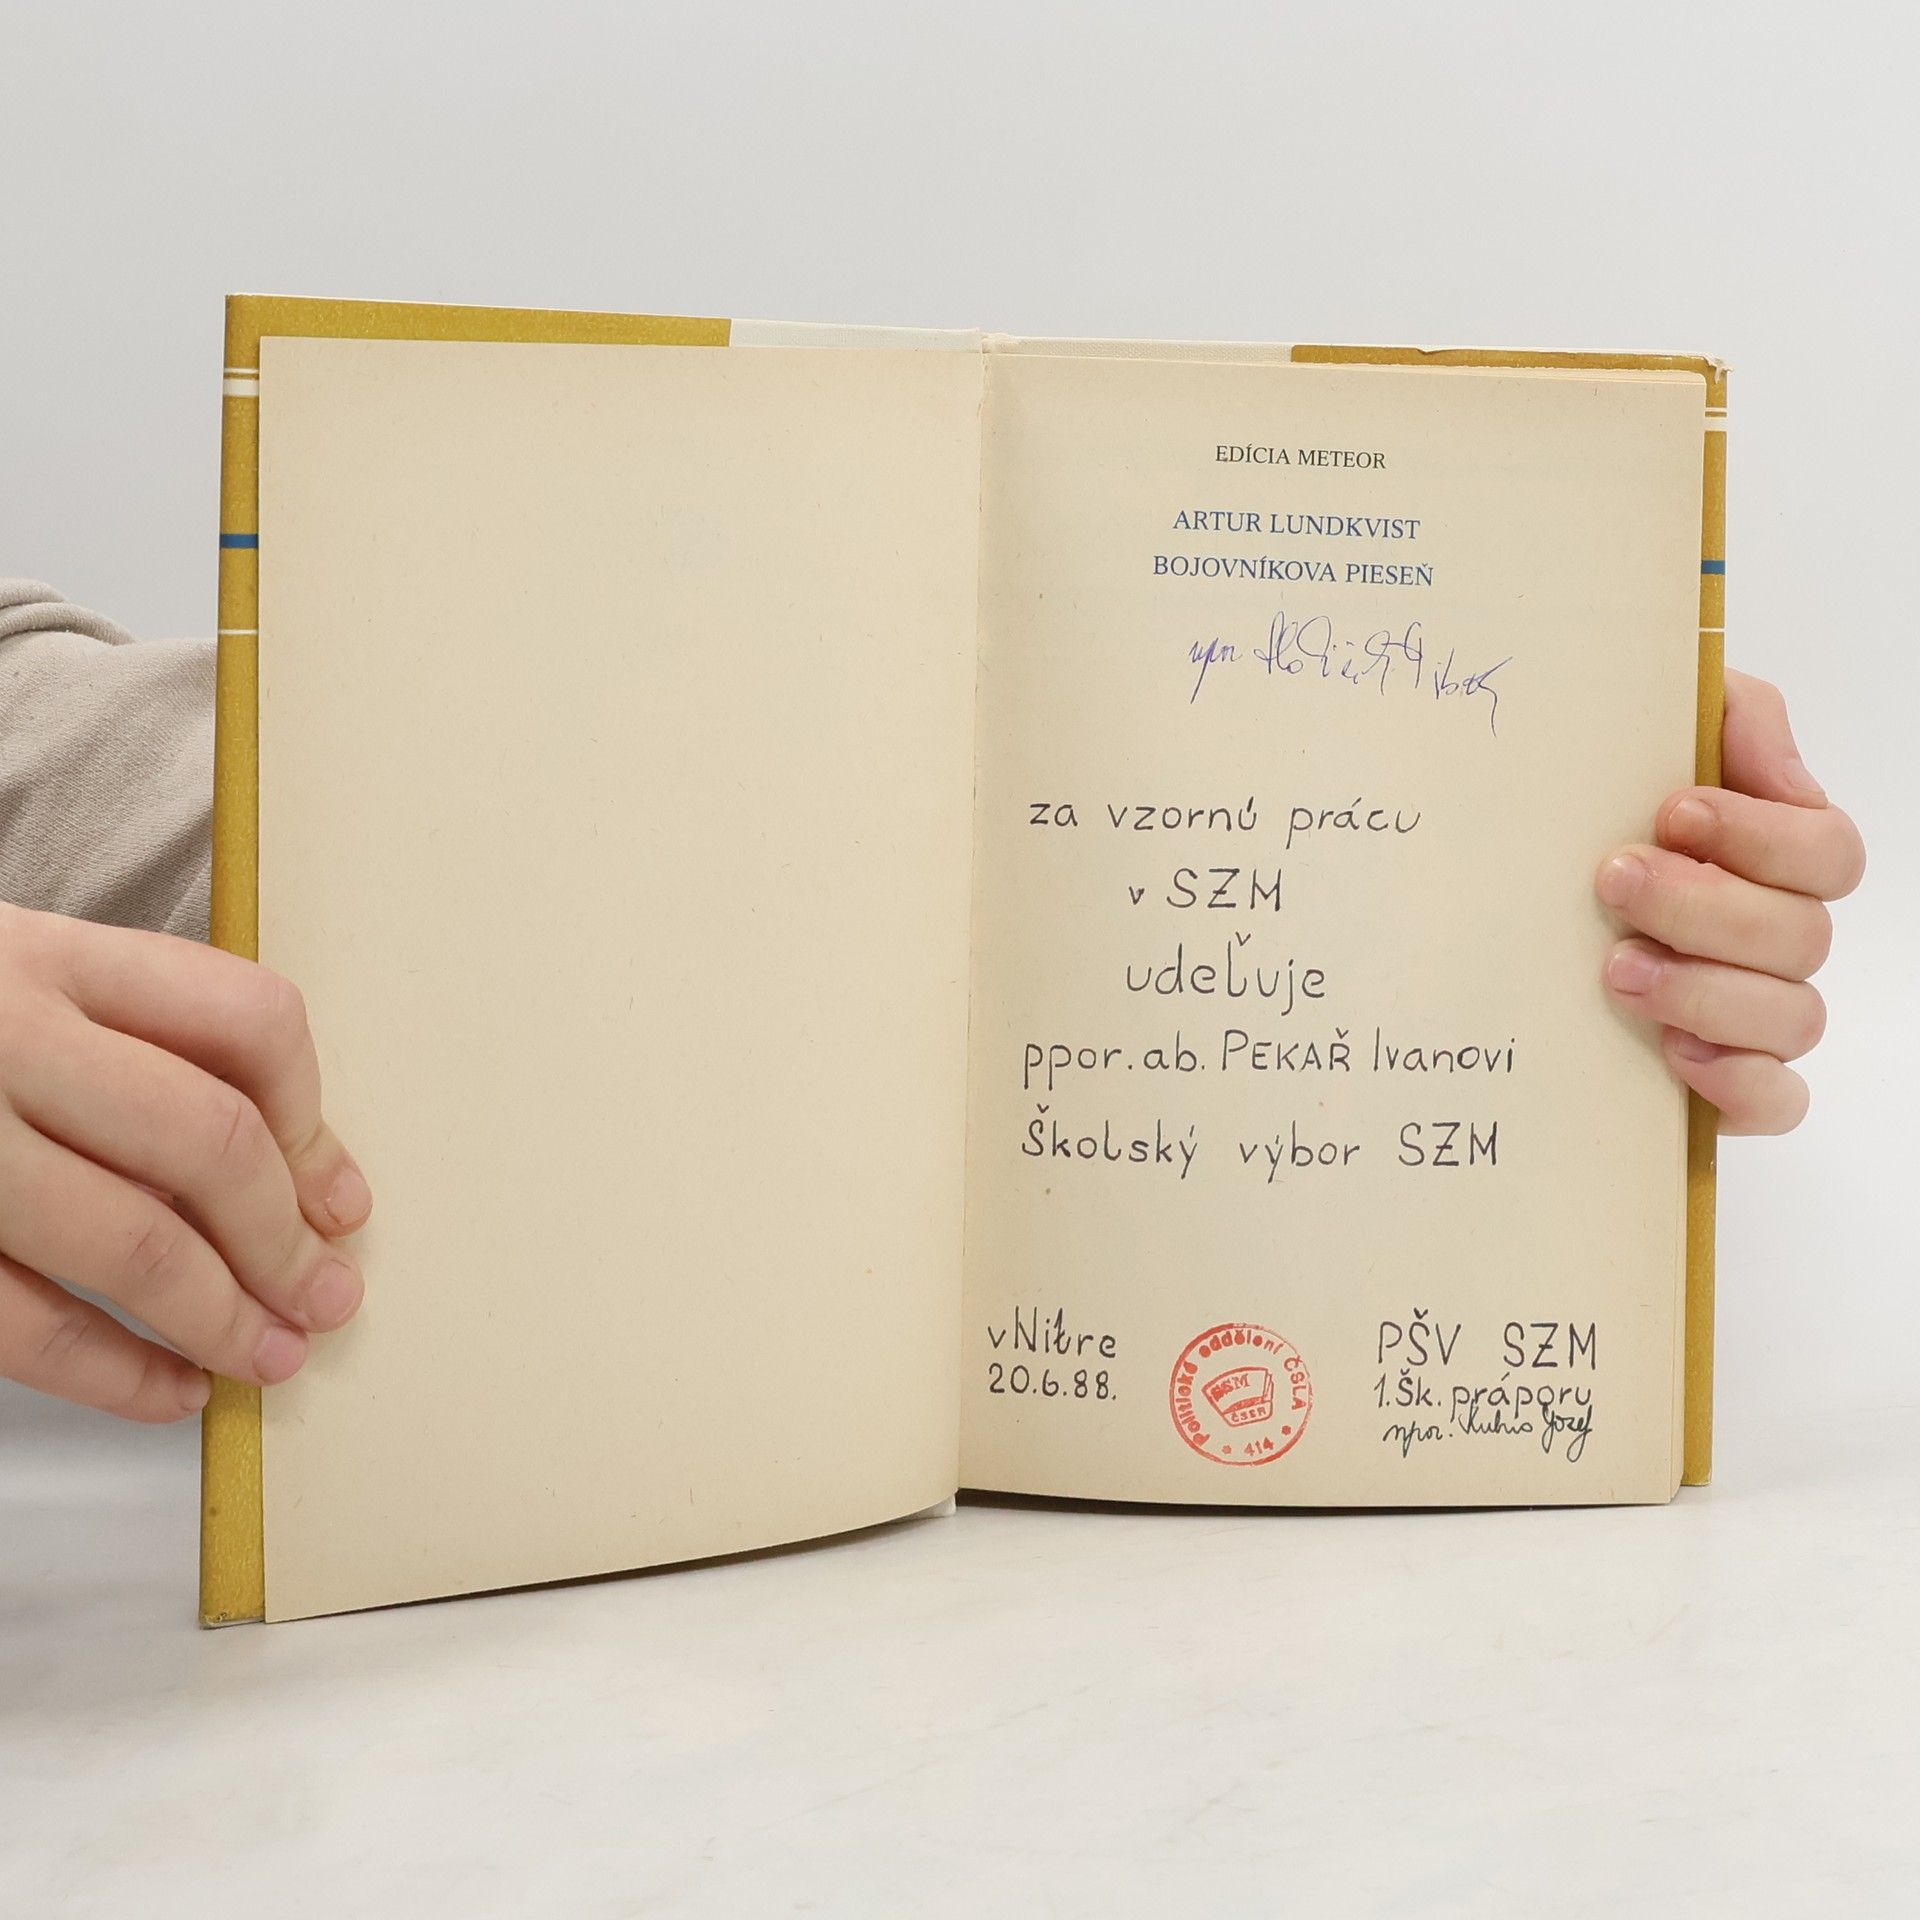 EDÍCIA METEOR
ARTUR LUNDKVIST
BOJOVNÍKOVA PIESEŇ
npor
za vzornú prácu
v SZM
udeľuje
ppor. ab. PEKAŘ Ivanovi
Školský výbor SZM
v Nitre
20.6.88.
Politické oddělení ČSLA
SSM
ČSSR
* 414 *
PŠV SZM
1. Šk. práporu
npor. Jozef